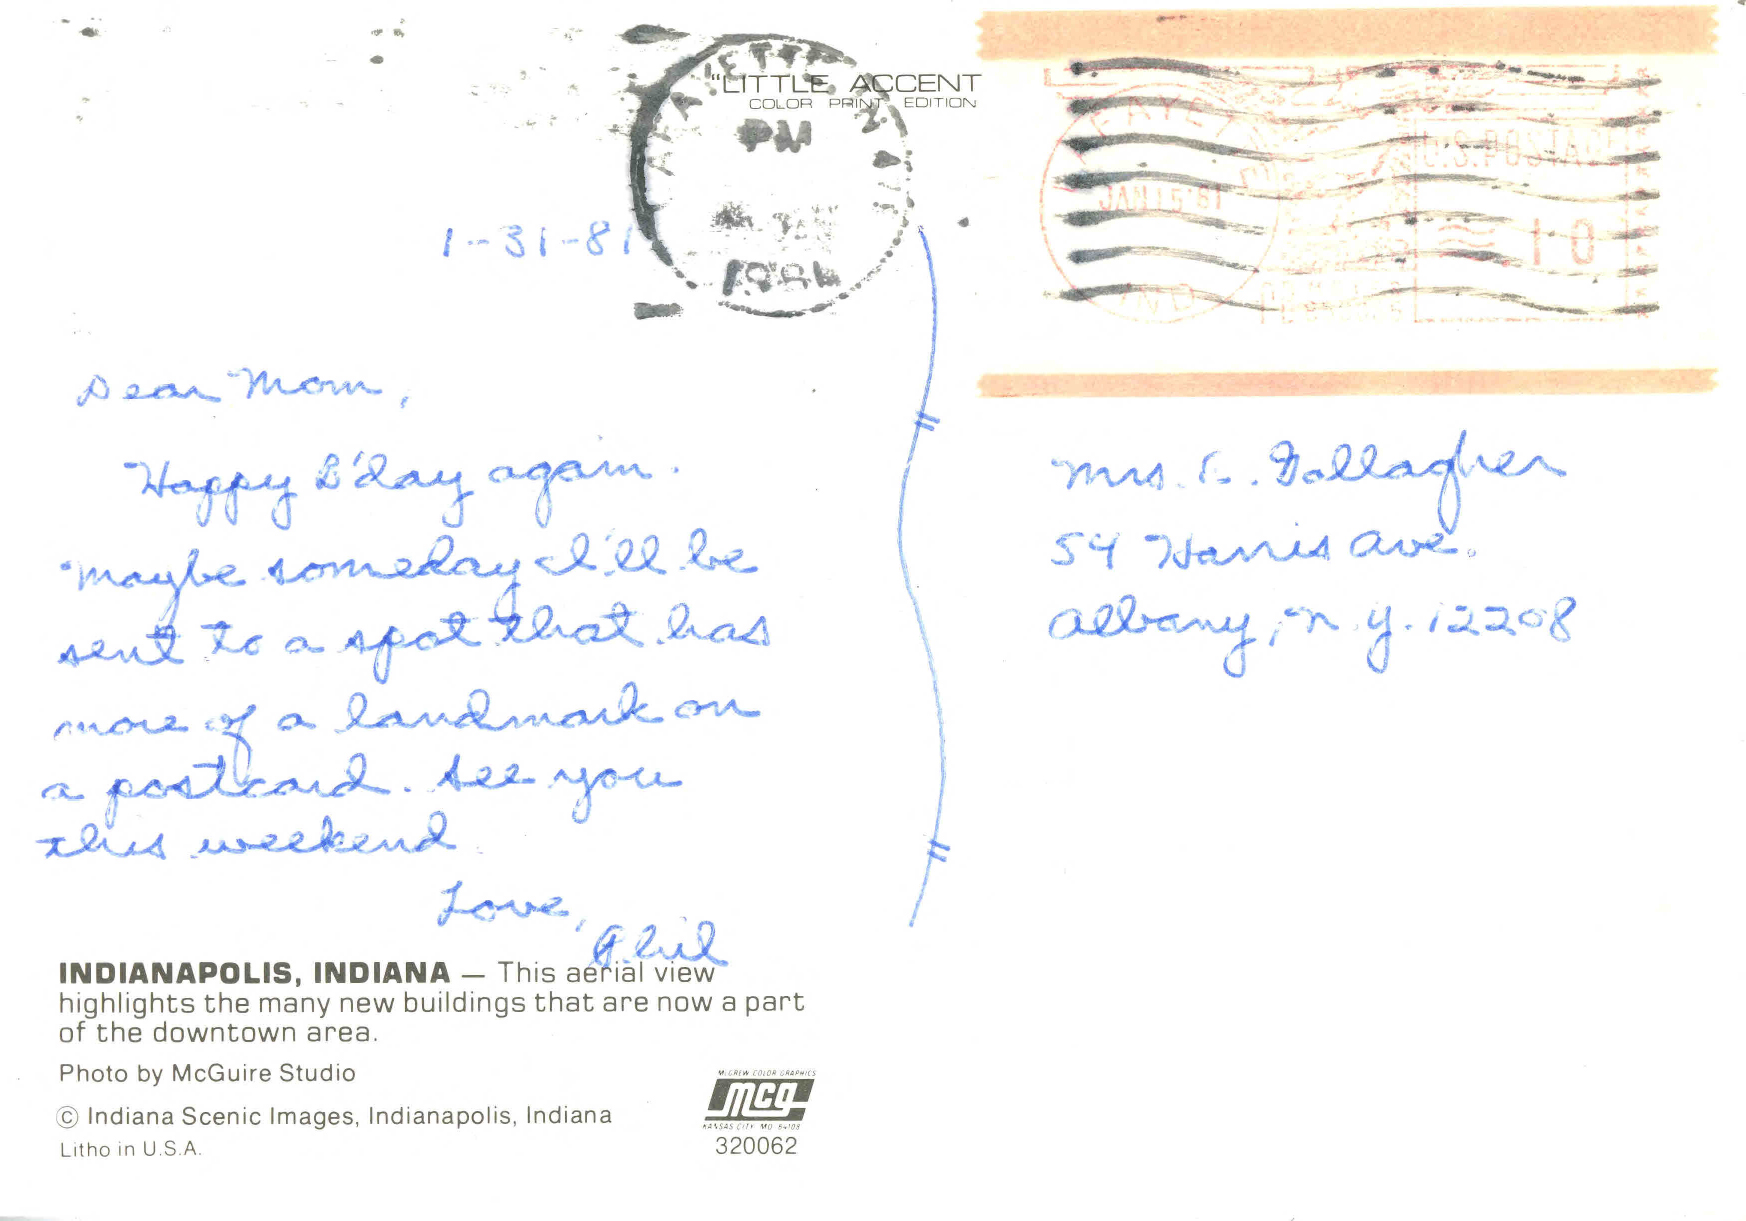 "LITTLE ACCENT
COLOR PRINT EDITION
PM
JAN
1981
LAFAYETTE
JAN 16 '81
IND
U.S. POSTAGE
10
1-31-81
Dear Mom,
Happy B'day again.
Maybe someday I'll be
sent to a spot that has
more of a landmark on
a postcard. See you
this weekend
Love,
Phil
Mrs. E. Gallagher
54 Harris Ave.
Albany, N.Y. 12208
INDIANAPOLIS, INDIANA — This aerial view
highlights the many new buildings that are now a part
of the downtown area.
Photo by McGuire Studio
© Indiana Scenic Images, Indianapolis, Indiana
Litho in U.S.A.
McGREW COLOR GRAPHICS
mcg
KANSAS CITY MO 64108
320062